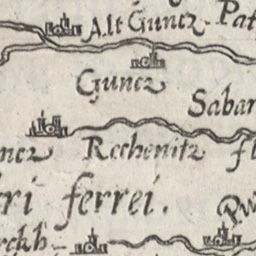 Alt Guncz. Pat
Guncz
Sabar
ncz Rechenitz fl
tri ferrei.
Pw
rckh